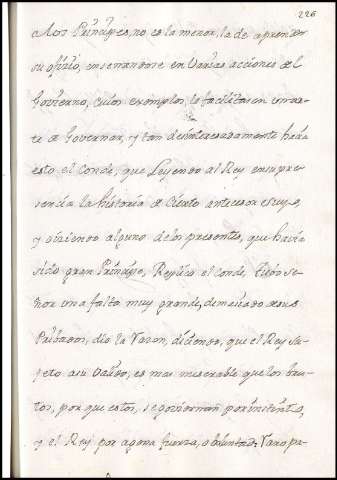 226
a los Príncipes, no es la menor, la de aprender
su ofizio, ensenandose en varias acciones del
Govierno, cuios exemplos, le facilitasen en
te de Governar, y tan desinteresadamente hazia
esto el Conde, que Leyendo al Rey en su pre-
sencia la historia de Cierto antecesor suyo,
y diciendo alguno de los presentes, que havia
sido gran Príncipe, Replico el Conde, tubo se-
ñor una falta muy grande, de mas de sus
Pribados, dio la Razon, diciendo, que el Rey su-
geto a su Valido, es mas miserable que los bru-
tos, por que estos, se goviernan por instinto,
y el Rey por agena fuerza, o boluntad; Varo pa-